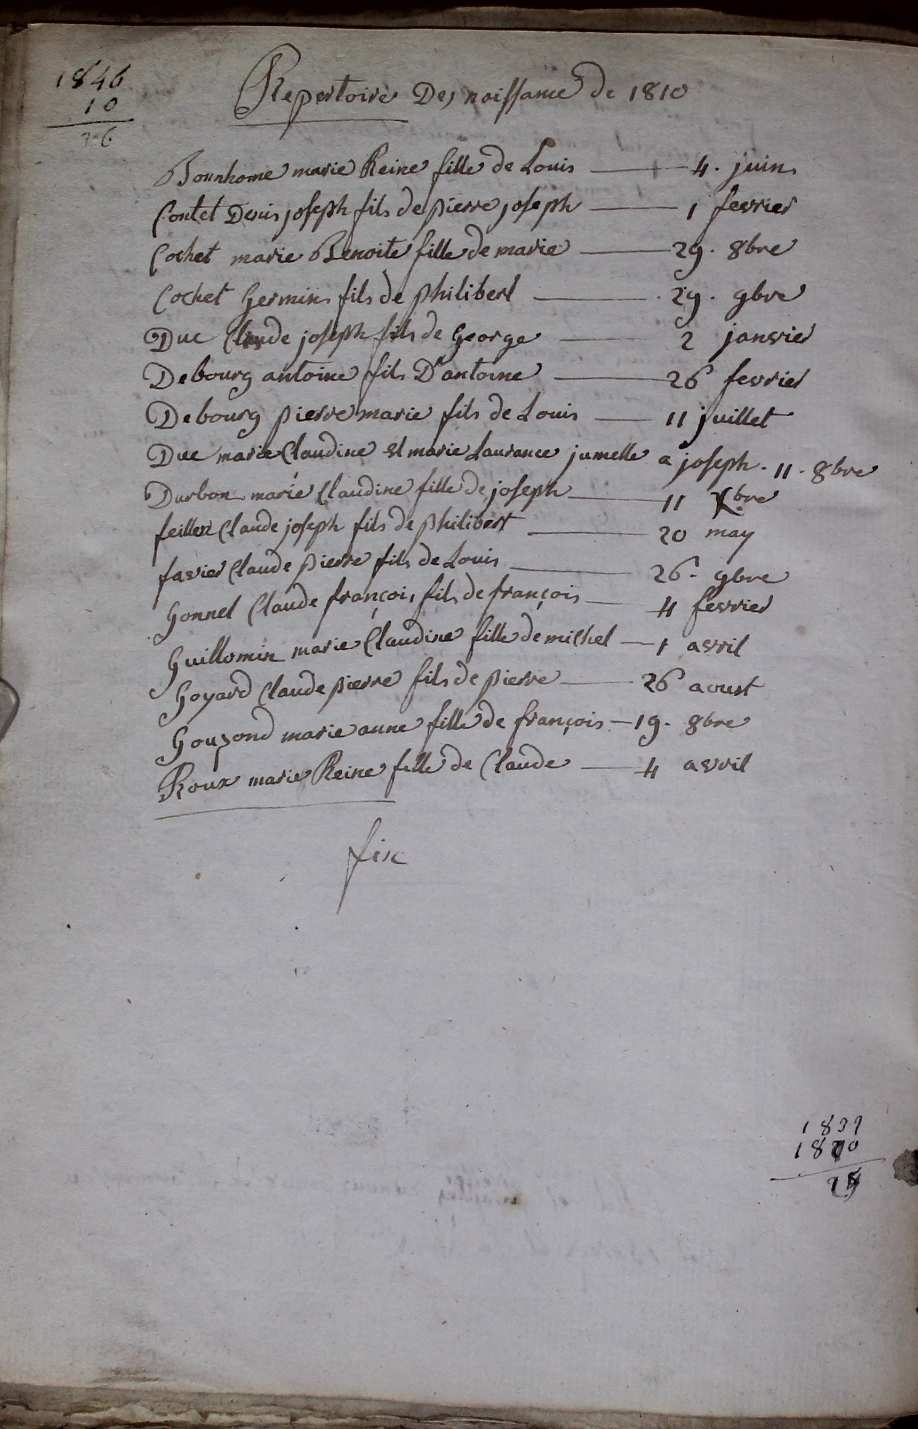 1846
10
36
Repertoire Des naissance de 1810
Bonnhome marie Reine fille de Louis 4. juin
Contet Denis joseph fils de pierre joseph 1 fevrier
Cochet marie Benoite fille de marie 29. 8bre
Cochet Germin fils de philibert 29. 9bre
Duc Claude joseph fils de George 2 janvier
Debourg antoine fils D'antoine 26 fevrier
Debourg pierre marie fils de Louis 11 juillet
Duc marie Claudine et marie Laurance jumelle a joseph. 11. 8bre
Durbon marie Claudine fille de joseph 11 Xbre
feillen Claude joseph fils de philibert 20 may
favier Claude pierre fils de Louis 26. 9bre
Gonnel Claude françois fils de françois 4 fevrier
Guillomin marie Claudine fille de michel 1 avril
Goyard Claude pierre fils de pierre 26 aoust
Gouzond marie anne fille de françois 19. 8bre
Roux marie Reine fille de Claude 4 avril
fin
1839
1810
29